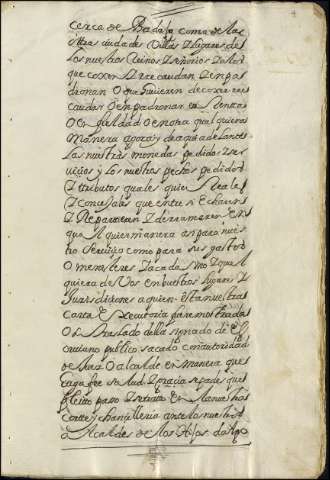 cerca de Badajo como de las
otras ciudades Villas I lugares de
los nuestros Reinos I Señorios I a los
que cojen I recaudan I enpa
dronan O que huvieren de cojer I re
caudar O enpadronar en Renta
O en fieldad O en otra qualquiera
manera agora y de aqui adelante
las nuestras monedas pedidos I ser
viçios y los nuestros pechos pedidos
I tributos quales quier Reales
I Conçejales que entre si Echaren
I Repartieren I derramaren En
qual quier manera asi para nuestro
Serviçio como para sus gastos
O menesteres I a cada Uno I qual
quiera de Vos en buestros lugares I
Jurisdiçiones a quien Esta nuestra
carta Executoria fuere mostrada
O el traslado della signado de Es
crivano publico sacado con autoridad
de Juez O alcalde en manera que
haga fee Salud I graçia sepades que
Pleito paso I se trato En la nuestra
Corte y chançilleria ante los nuestros
Alcaldes de los Hijos dalgo